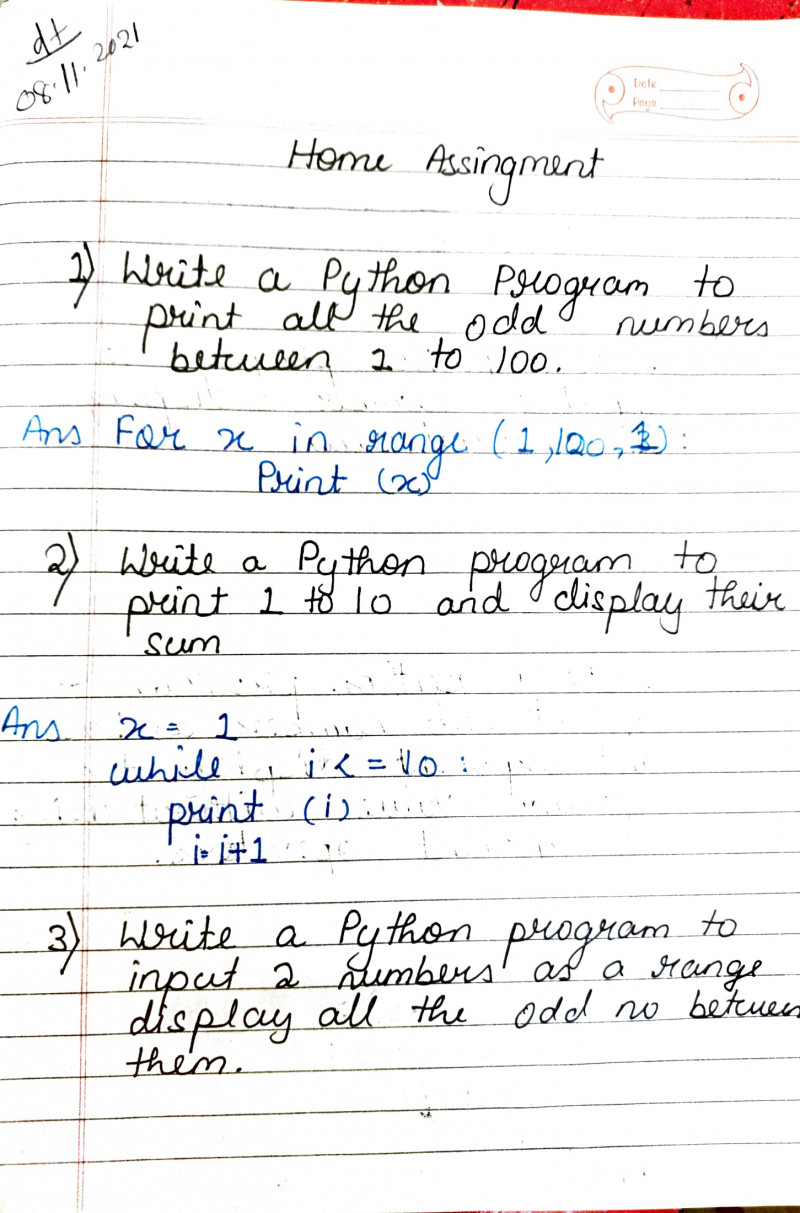 dt
08.11.2021
Date
Page
Home Assingment
1) Write a Python Program to
print all the odd numbers
between 1 to 100.
Ans For x in range (1,100, ):
Print (x)
2) Write a Python program to
print 1 to 10 and display their
sum
Ans x = 1
while i <= 10 :
print (i)
i= i+1
3) Write a Python program to
input 2 numbers as a range
display all the odd no between
them.